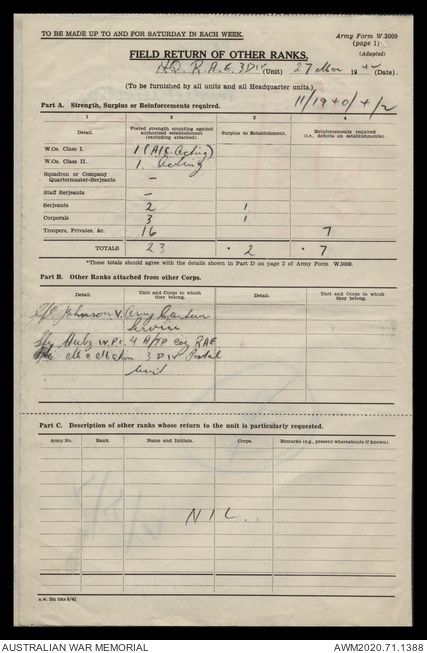 TO BE MADE UP TO AND FOR SATURDAY IN EACH WEEK.
Army Form W.3009
(page 1)
(Adapted)
FIELD RETURN OF OTHER RANKS.
H.Q. R.A.E. 3 DIV (Unit) 27 Mar 19 (Date).
(To be furnished by all units and all Headquarter units.)
Part A. Strength, Surplus or Reinforcements required.
1 2 3 4
Detail. Posted strength counting against authorized establishment (excluding attached). Surplus to Establishment. Reinforcements required (i.e., deficits on establishments).
W.Os. Class I. 1 (A/c Acting)
W.Os. Class II. 1 Acting
Squadron or Company Quartermaster-Serjeants —
Staff Serjeants —
Serjeants 2 1
Corporals 3 1
Troopers, Privates, &c. 16 7
TOTALS 23 * 2 * 7
*These totals should agree with the details shown in Part D on page 2 of Army Form W.3009.
Part B. Other Ranks attached from other Corps.
Detail. Unit and Corps to which they belong. Detail. Unit and Corps to which they belong.
Cpl Johnson V. Army Canteen
Service
W.P.C. 4 Coy RAE
3 DIV Postal
Unit
Part C. Description of other ranks whose return to the unit is particularly requested.
Army No. Rank. Name and Initials. Corps. Remarks (e.g., present whereabouts if known).
NIL.
AUSTRALIAN WAR MEMORIAL AWM2020.71.1388